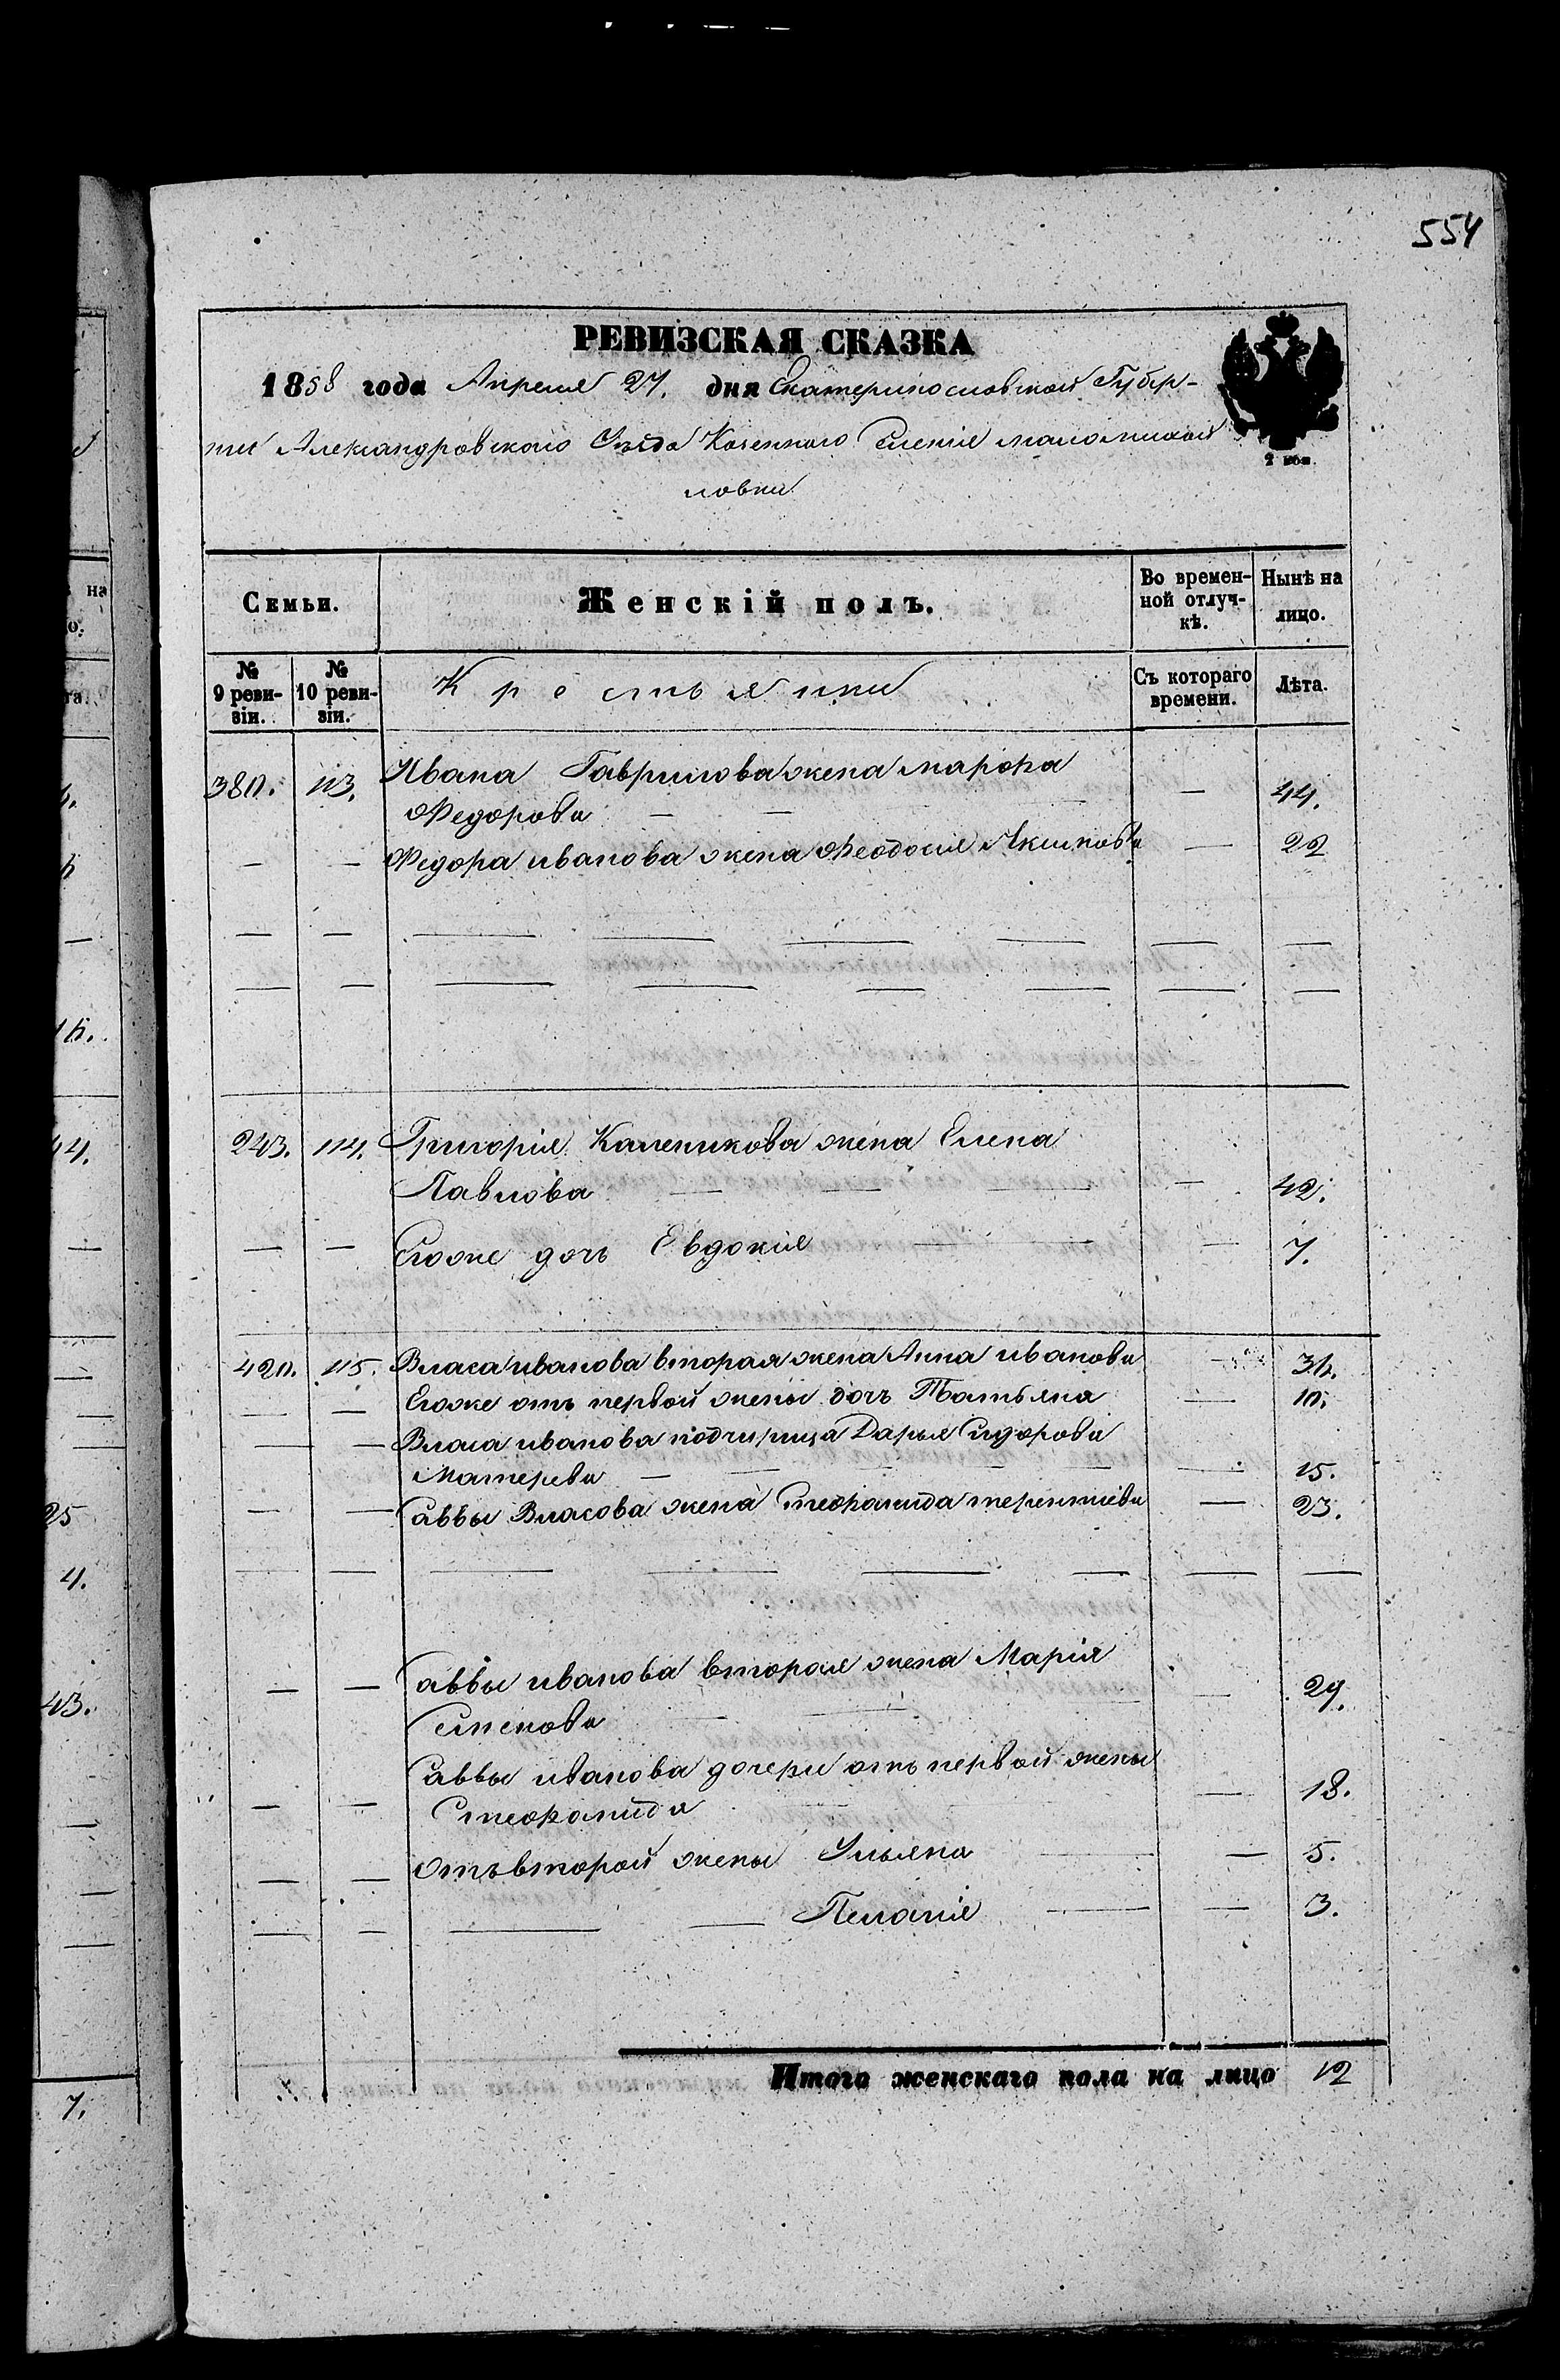 554
РЕВИЗСКАЯ СКАЗКА
1858 года Апреля 27. дня Екатеринославской Губер-
нии Александровского Уѣзда Казенного Селенія маломихай
ловки
2 коп.
Семьи. Женскій полъ. Во времен- Нынѣ на
ной отлуч- лицо.
кѣ.
№ № Крестьянки Съ котораго Лѣта.
9 реви- 10 реви- времени.
зіи. зіи.
380. 113. Ивана Гаврилова жена марфа
Федорова — — — — 44.
— — Федора иванова жена Феодосия Акимова — 22
243. 114. Григорія Каленикова жена Елена
Павлова — — — — 42.
— — Егоже дочь Евдокия — — — 7.
420. 115. Власа иванова вторая жена Анна иванова — 36.
— — Егоже отъ первой жены дочь Татьяна — 10.
— — Власа иванова подчирица Дарья Сидорова
Матерева — — — — — — 15.
— — Саввы Власова жена Стефанида терентиева — 23.
— — Саввы иванова вторая жена Марія
— — — 29.
Саввы иванова дочери отъ первой жены
— — Стефанида — 18.
— — Отъ второй жены Ульяна — — 5.
— — — — Пелагія — — 3.
Итого женскаго пола на лицо 12
на
о.
та.
14.
25
4.
43.
7.